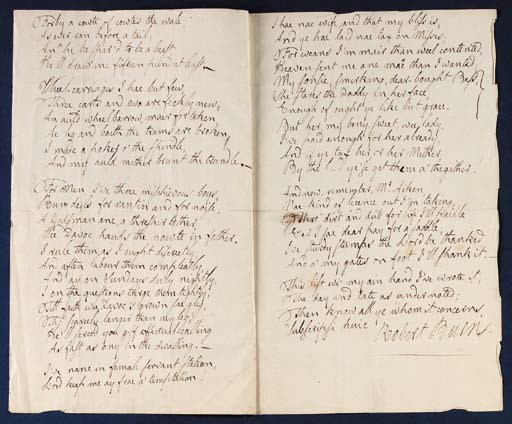 Forby a cowte o' cowtes the wale;
As ever ran before a tail;
An' he be spar'd to be a beast
He'll draw me fifteen pund at least.—
Wheel-carriages I hae but few
Three carts and twa are feckly new,
An auld wheel barrow, mair for token
Ae leg and baith the trams are broken;
I made a poker o' the spindle,
And my auld mither brunt the trundle.—
For Men, I've three mischievous boys,
Run deils for rantin and for noise;
A Gadsman ane, a thresher t'other,
Wee Davoc hauds the nowte in fother.
I rule them as I ought discretely,
And aften labour them compleatly
And ay on Sundays duly nightly
I on the questions targe them tightly;
Till faith wee Davoc's grown sae gleg,
Tho' scarcely langer than my leg
He'll screed you aff effectual calling
As fast as ony in the dwalling.—
I've nane in female servant station,
Lord keep me ay frae a' temptation!
I hae nae wife, and that my bliss is,
And ye hae laid nae tax on Misses.
For weans I'm mair than weel contented,
Heaven sent me ane mair than I wanted;
My sonsie, smirking, dear-bought Bess
She stares the Daddy in her face
Enough of ought ye like but grace.
But her, my bony, sweet, wee lady
I've paid enough for her already,
And if ye tax her or her Mither,
By the L— ye'se get them a' thegither!
And now, remember, Mr Aiken
Nae kind o' licence out I'm taking,
Thro' dirt and dub for life I'll paidle
Ere I sae dear pay for a saddle
I've sturdy stumps the Lord be thanked
And a' my gates on foot I'll shank it.—
This list wi' my ain hand I've wrote it,
The day and date as under noted;
Then know all ye whom it concerns,
Subscripsi huic Robert Burns